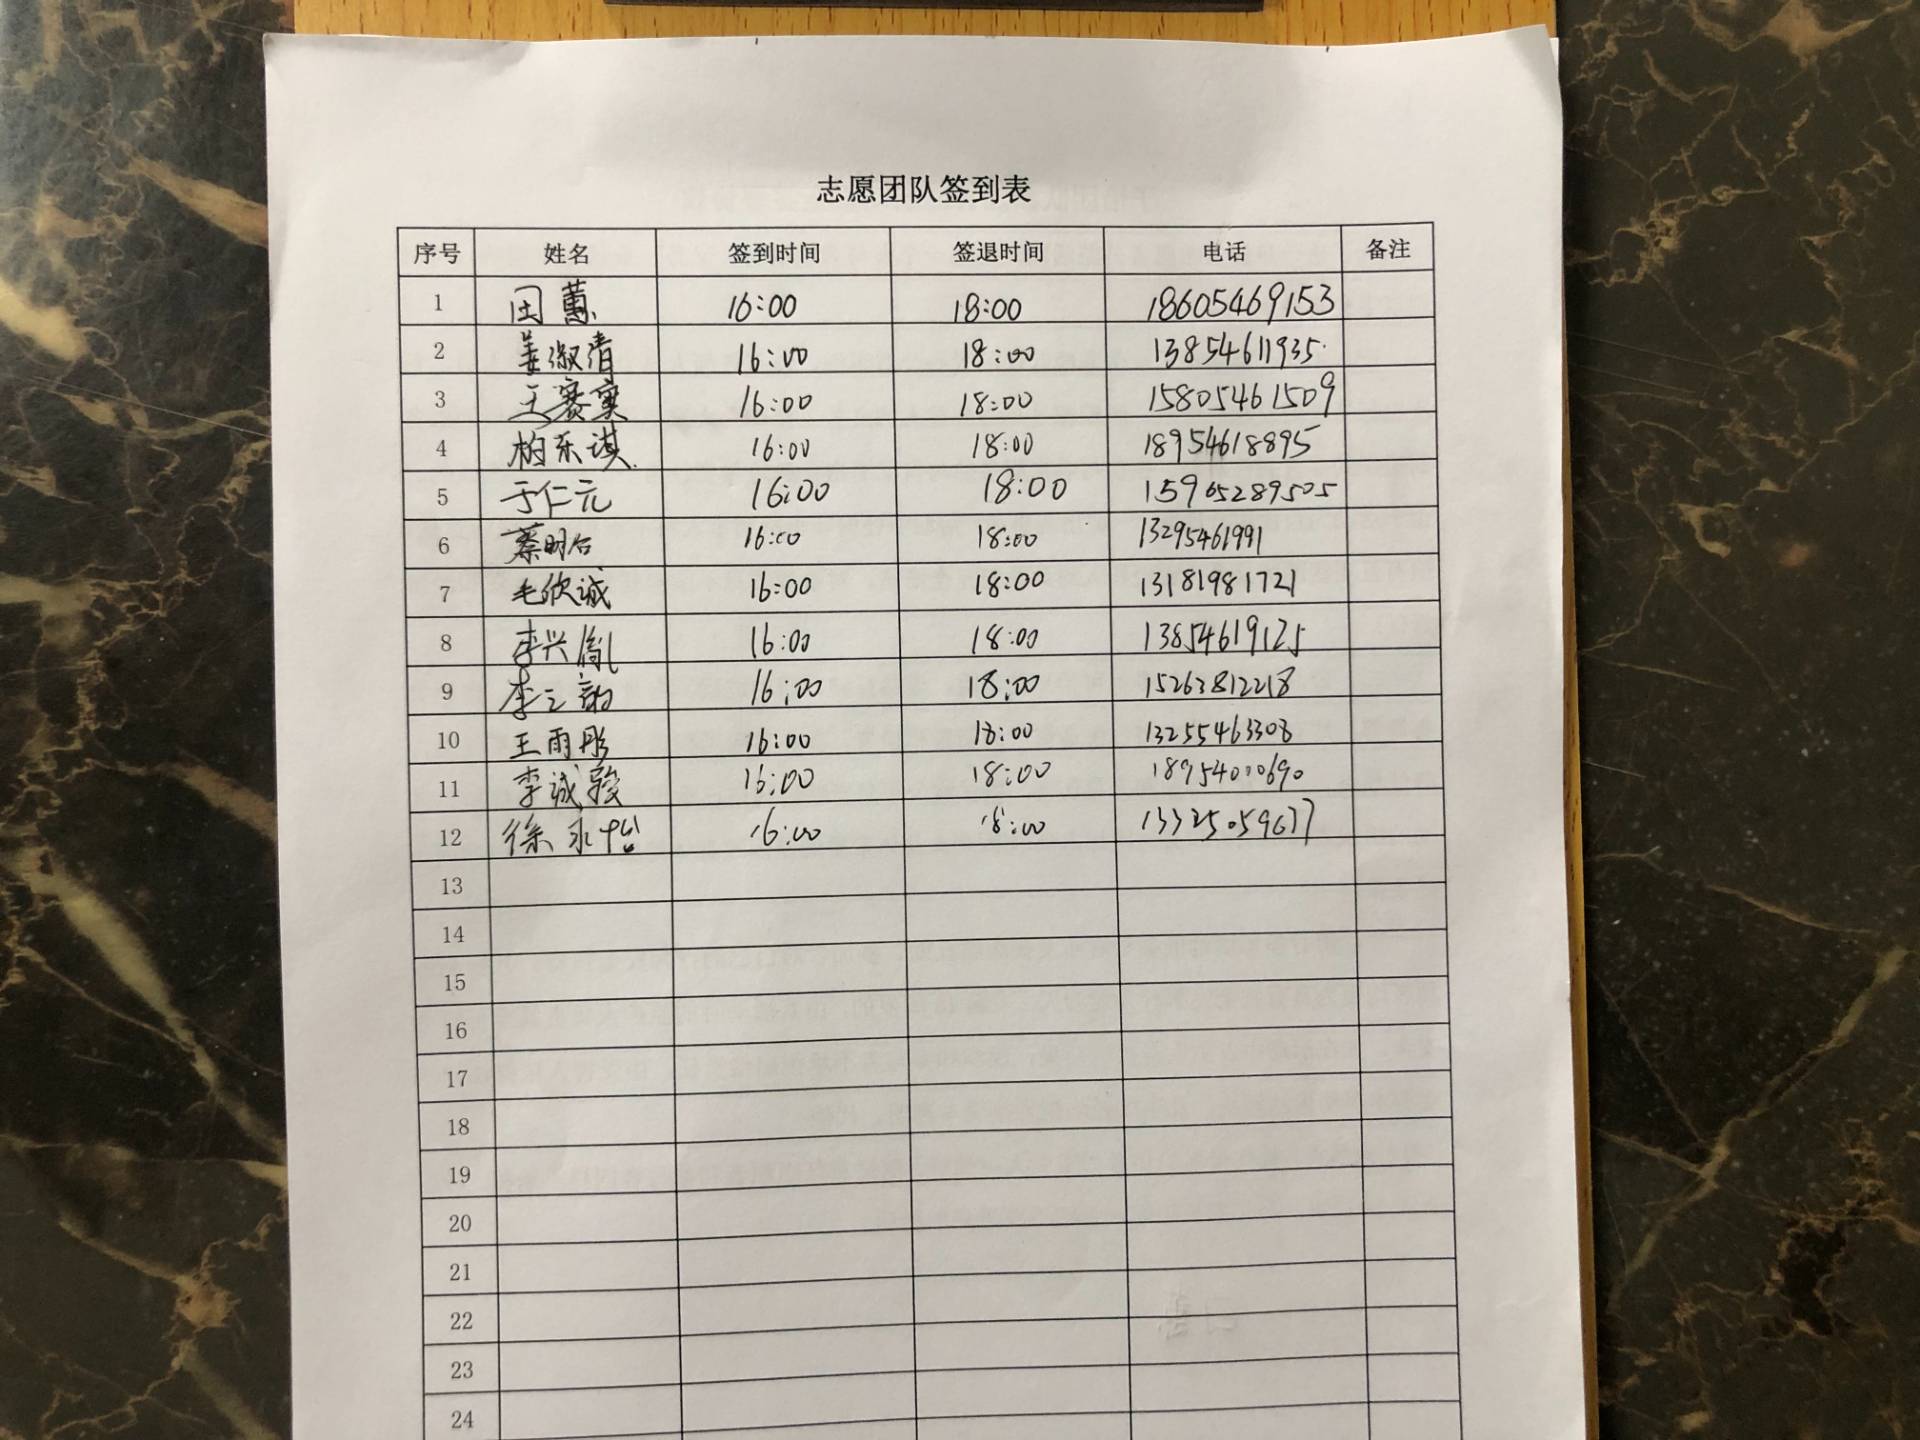 志愿团队签到表
序号 姓名 签到时间 签退时间 电话 备注
1 田蕙 16:00 18:00 18605469153
2 姜淑清 16:00 18:00 13854611935
3 王赛寅 16:00 18:00 15805461509
4 柏东琪 16:00 18:00 18954618895
5 于仁元 16:00 18:00 15965289505
6 蔡明台 16:00 18:00 13295461991
7 毛欣诚 16:00 18:00 13181981721
8 李兴胤 16:00 18:00 13854619125
9 李之韵 16:00 18:00 15263812218
10 王雨彤 16:00 18:00 13255463308
11 李诚骏 16:00 18:00 18954000690
12 徐永怡 16:00 18:00 13325059677
13
14
15
16
17
18
19
20
21
22
23
24